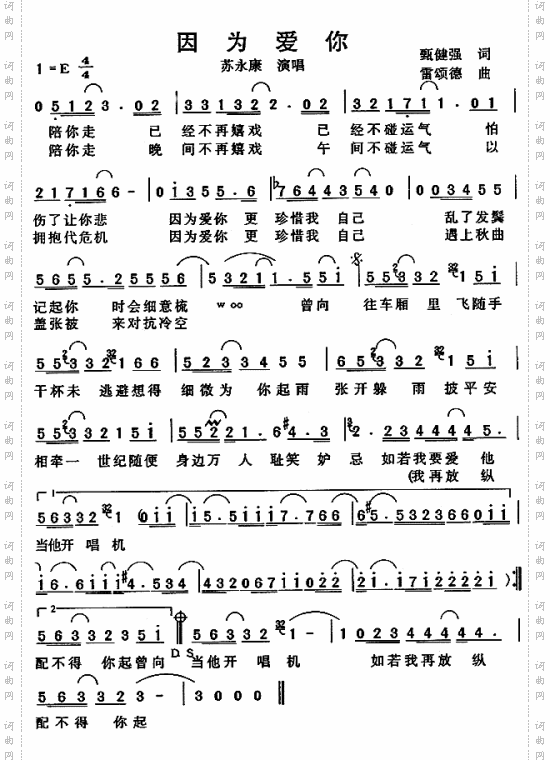 因为爱你
1=E 4/4
苏永康 演唱
甄健强 词
雷颂德 曲
0 5 1 2 3. 0 2 | 3 3 1 3 2 2. 0 2 | 3 2 1 7 1 1. 0 1 |
陪你走 已 经不再嬉戏 已 经不碰运气 怕
陪你走 晚 间不再嬉戏 午 间不碰运气 以
2 1 7 1 6 6 - | 0 1 3 5 5. 6 | b7 6 4 4 3 5 4 0 | 0 0 3 4 5 5
伤了让你悲 因为爱你 更 珍惜我 自己 乱了发鬓
拥抱代危机 因为爱你 更 珍惜我 自己 遇上秋曲
5 6 5 5. 2 5 5 5 6 | 5 3 2 1 1. 5 5 i | 5 5 3 3 2 1 5 i
记起你 时会细意梳 woo 曾向 往车厢 里 飞随手
盖张被 来对抗冷空
5 5 3 3 2 1 6 6 | 5 2 3 3 4 5 5 | 6 5 3 3 2 1 5 i
干杯未 逃避想得 细微为 你起雨 张开躲 雨 披平安
5 5 3 3 2 1 5 i | 5 5 2 2 1. 6 #4. 3 | #2. 2 3 4 4 4 4 5.
相牵一 世纪随便 身边万 人 耻笑 妒 忌 如若我要爱 他
(我再放 纵
1
5 6 3 3 2 1 (0 i i | i 5. 5 i i i 7. 7 6 6 | #6 5. 5 3 2 3 6 6 0 i i
当他开 唱 机
i 6. 6 i i i #4. 5 3 4 | 4 3 2 0 6 7 i i 0 2 2 | 2 i. i 7 i 2 2 2 2 i ) :||
2
5 6 3 3 2 3 5 i | 5 6 3 3 2 1 - | 1 0 2 3 4 4 4 4. 4
D.S.
配不得 你起曾向 当他开 唱 机 如若我再放 纵
5 6 3 3 2 3 - | 3 0 0 0 ||
配不得 你起
词曲网